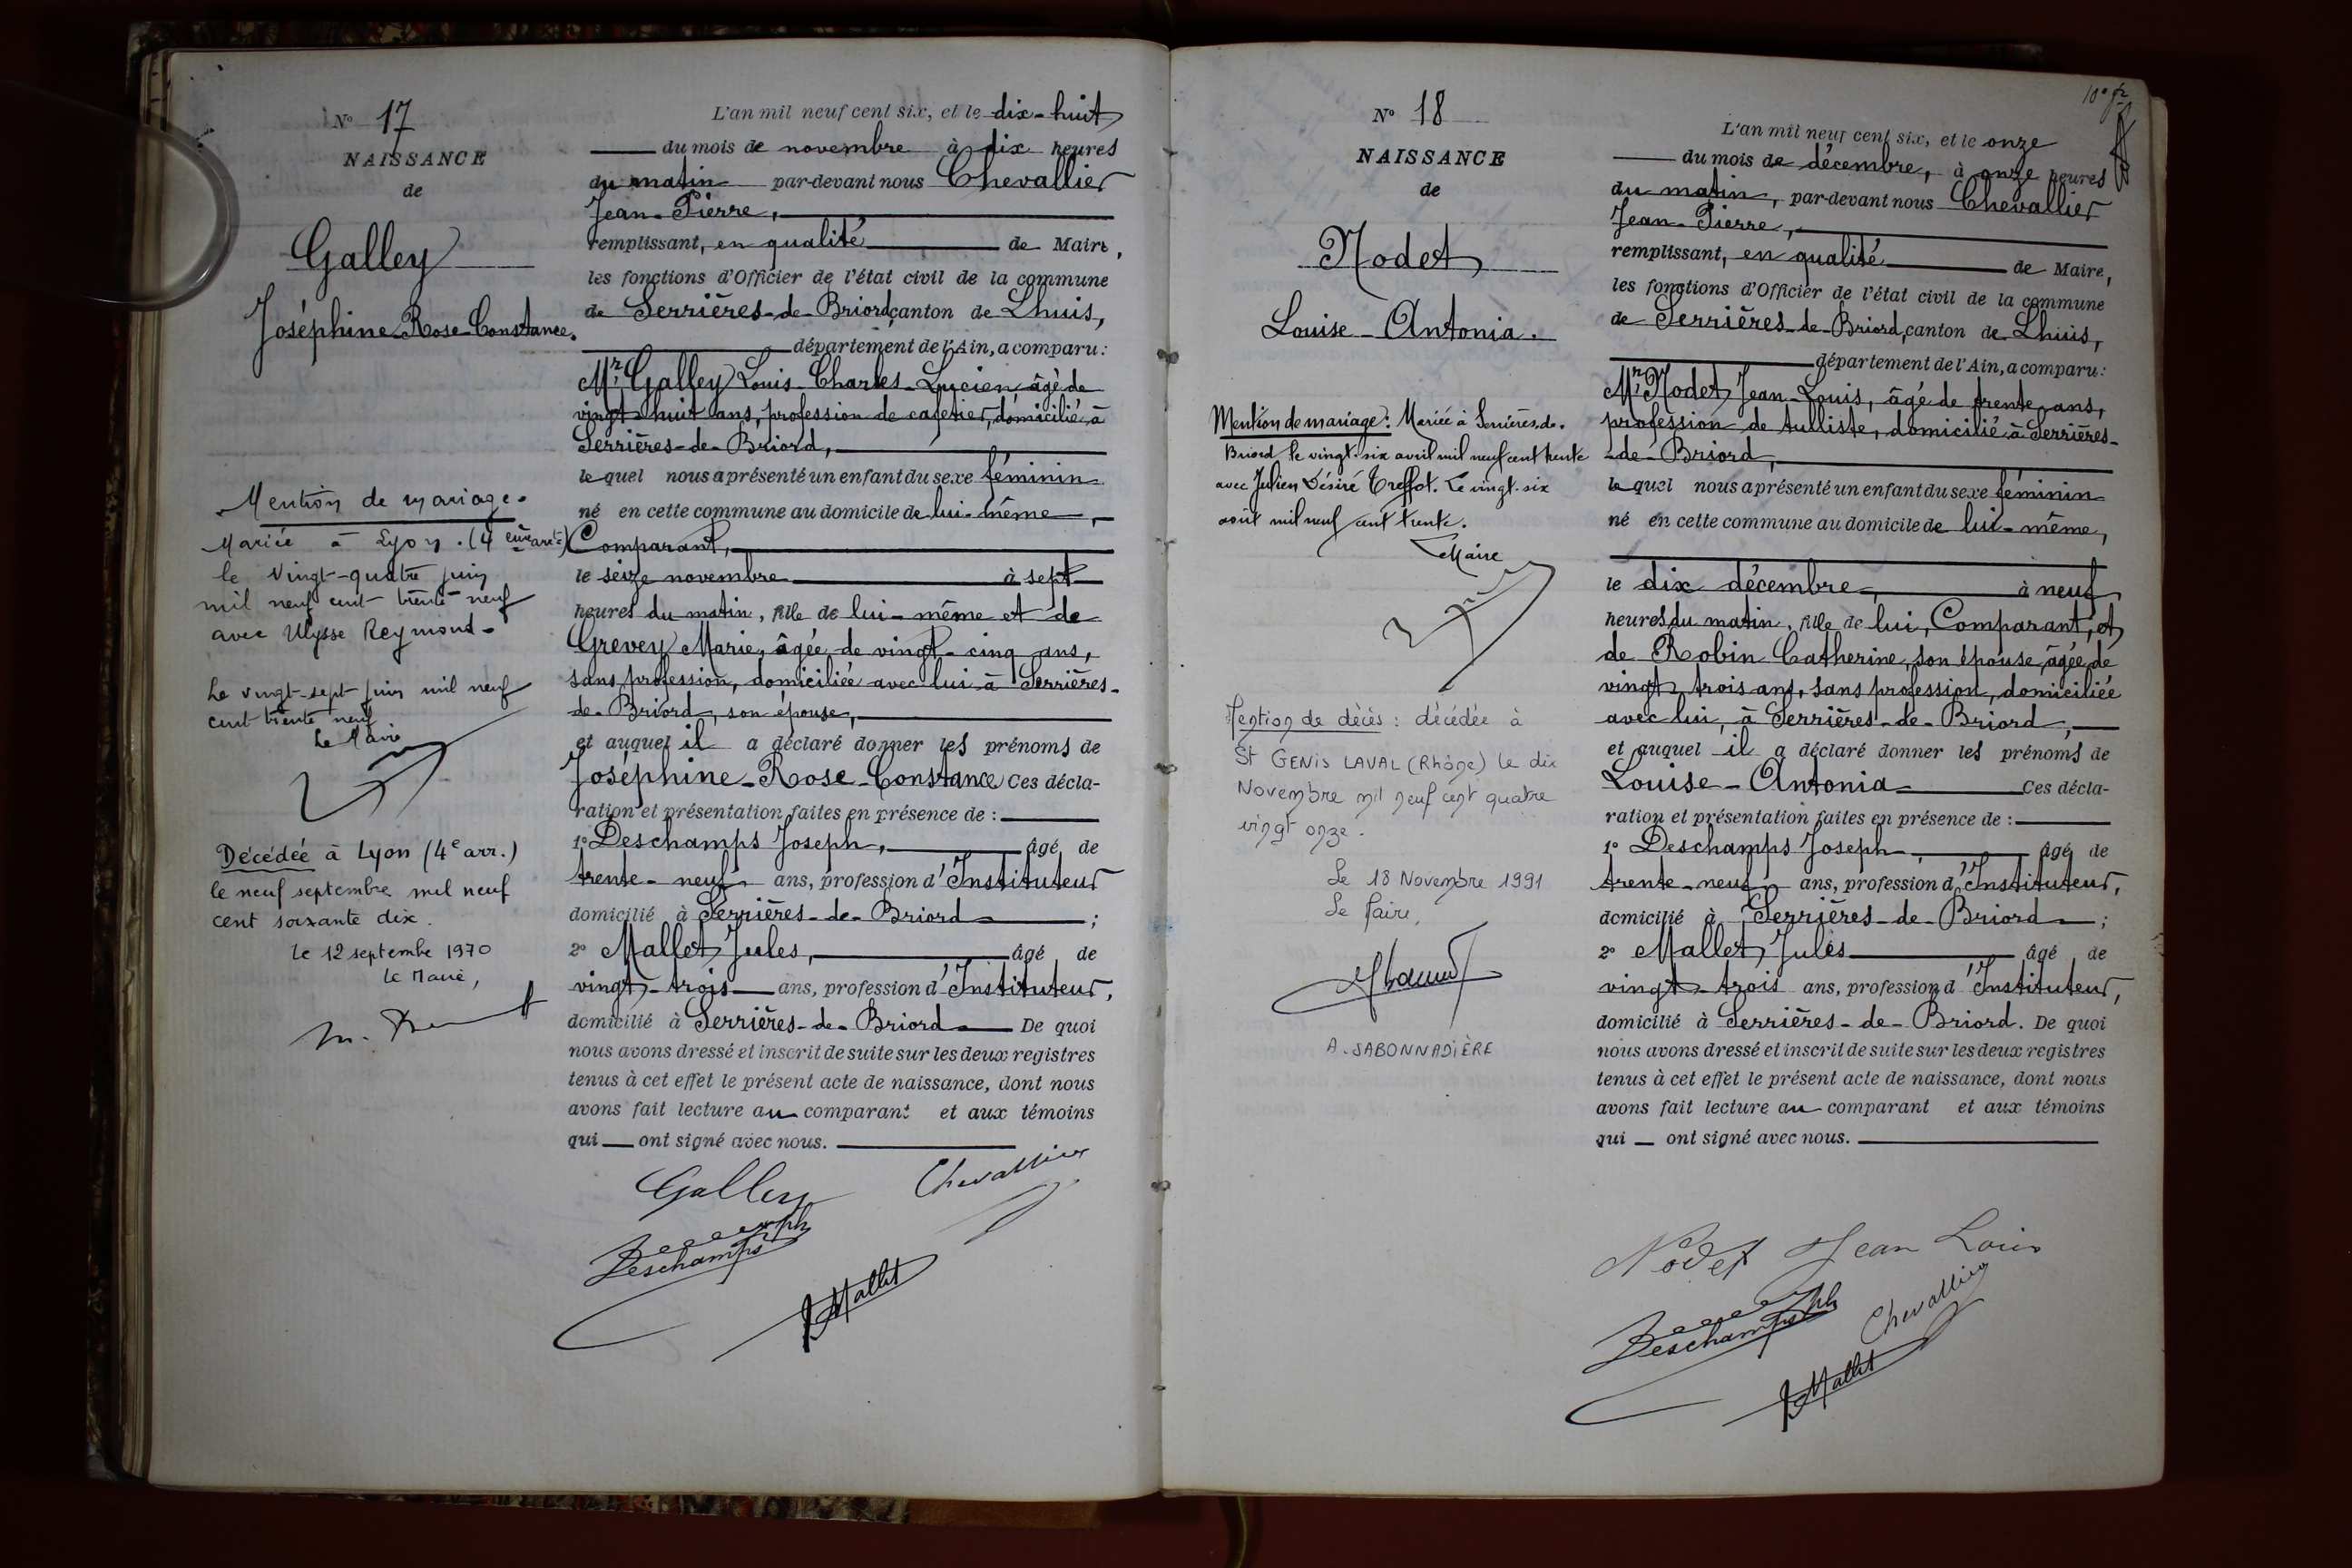 N° 17
NAISSANCE
de
Galley
Joséphine-Rose-Constance.
Mention de mariage.
Mariée à Lyon. (4 eme arrt)
le vingt-quatre juin
mil neuf cent trente neuf
avec Ulysse Reymond.
Le vingt-sept juin mil neuf
cent trente neuf
Le Maire
Décédée à Lyon (4e arr.)
le neuf septembre mil neuf
cent soixante dix.
Le 12 septembre 1970
Le Maire,
L'an mil neuf cent six, et le dix-huit
du mois de novembre à dix heures
du matin par-devant nous Chevallier
Jean-Pierre,
remplissant, en qualité de Maire,
les fonctions d'Officier de l'état civil de la commune
de Serrières-de-Briord, canton de Lhuis,
département de l'Ain, a comparu:
Mr Galley Louis-Charles-Lucien, âgé de
vingt-huit ans, profession de cafetier, domicilié à
Serrières-de-Briord,
le quel nous a présenté un enfant du sexe féminin
né en cette commune au domicile de lui-même,
Comparant,
le seize novembre à sept
heures du matin, fille de lui-même et de
Grevey Marie, âgée de vingt-cinq ans,
sans profession, domiciliée avec lui à Serrières-
de-Briord, son épouse,
et auquel il a déclaré donner les prénoms de
Joséphine-Rose-Constance Ces décla-
ration et présentation faites en présence de :
1° Deschamps Joseph, âgé de
trente-neuf ans, profession d'Instituteur
domicilié à Serrières-de-Briord ;
2° Mallet Jules, âgé de
vingt-trois ans, profession d'Instituteur,
domicilié à Serrières-de-Briord De quoi
nous avons dressé et inscrit de suite sur les deux registres
tenus à cet effet le présent acte de naissance, dont nous
avons fait lecture au comparant et aux témoins
qui ont signé avec nous.
Galley Chevallier
Deschamps
JMallet
N° 18
NAISSANCE
de
Nodet
Louise-Antonia.
Mention de mariage : Mariée à Serrières-de-
Briord le vingt-six avril mil neuf cent trente
avec Julien Désiré Treffot. Le vingt-six
août mil neuf cent trente.
Maire
Mention de décès : décédée à
St GENIS LAVAL (Rhône) le dix
Novembre mil neuf cent quatre
vingt onze.
Le 18 Novembre 1991
Le Maire,
A. SABONNADIÈRE
L'an mil neuf cent six, et le onze
du mois de décembre, à onze heures
du matin, par-devant nous Chevallier
Jean-Pierre,
remplissant, en qualité de Maire,
les fonctions d'Officier de l'état civil de la commune
de Serrières-de-Briord, canton de Lhuis,
département de l'Ain, a comparu:
Mr Nodet Jean-Louis, âgé de trente ans,
profession de tulliste, domicilié à Serrières-
-de-Briord,
le quel nous a présenté un enfant du sexe féminin
né en cette commune au domicile de lui-même,
le dix décembre, à neuf
heures du matin, fille de lui, Comparant, et
de Robin Catherine, son épouse, âgée de
vingt-trois ans, sans profession, domiciliée
avec lui, à Serrières-de-Briord,
et auquel il a déclaré donner les prénoms de
Louise-Antonia Ces décla-
ration et présentation faites en présence de :
1° Deschamps Joseph, âgé de
trente-neuf ans, profession d'Instituteur,
domicilié à Serrières-de-Briord ;
2° Mallet Jules âgé de
vingt-trois ans, profession d'Instituteur,
domicilié à Serrières-de-Briord. De quoi
nous avons dressé et inscrit de suite sur les deux registres
tenus à cet effet le présent acte de naissance, dont nous
avons fait lecture au comparant et aux témoins
qui ont signé avec nous.
Nodet Jean Louis
Deschamps Chevallier
JMallet